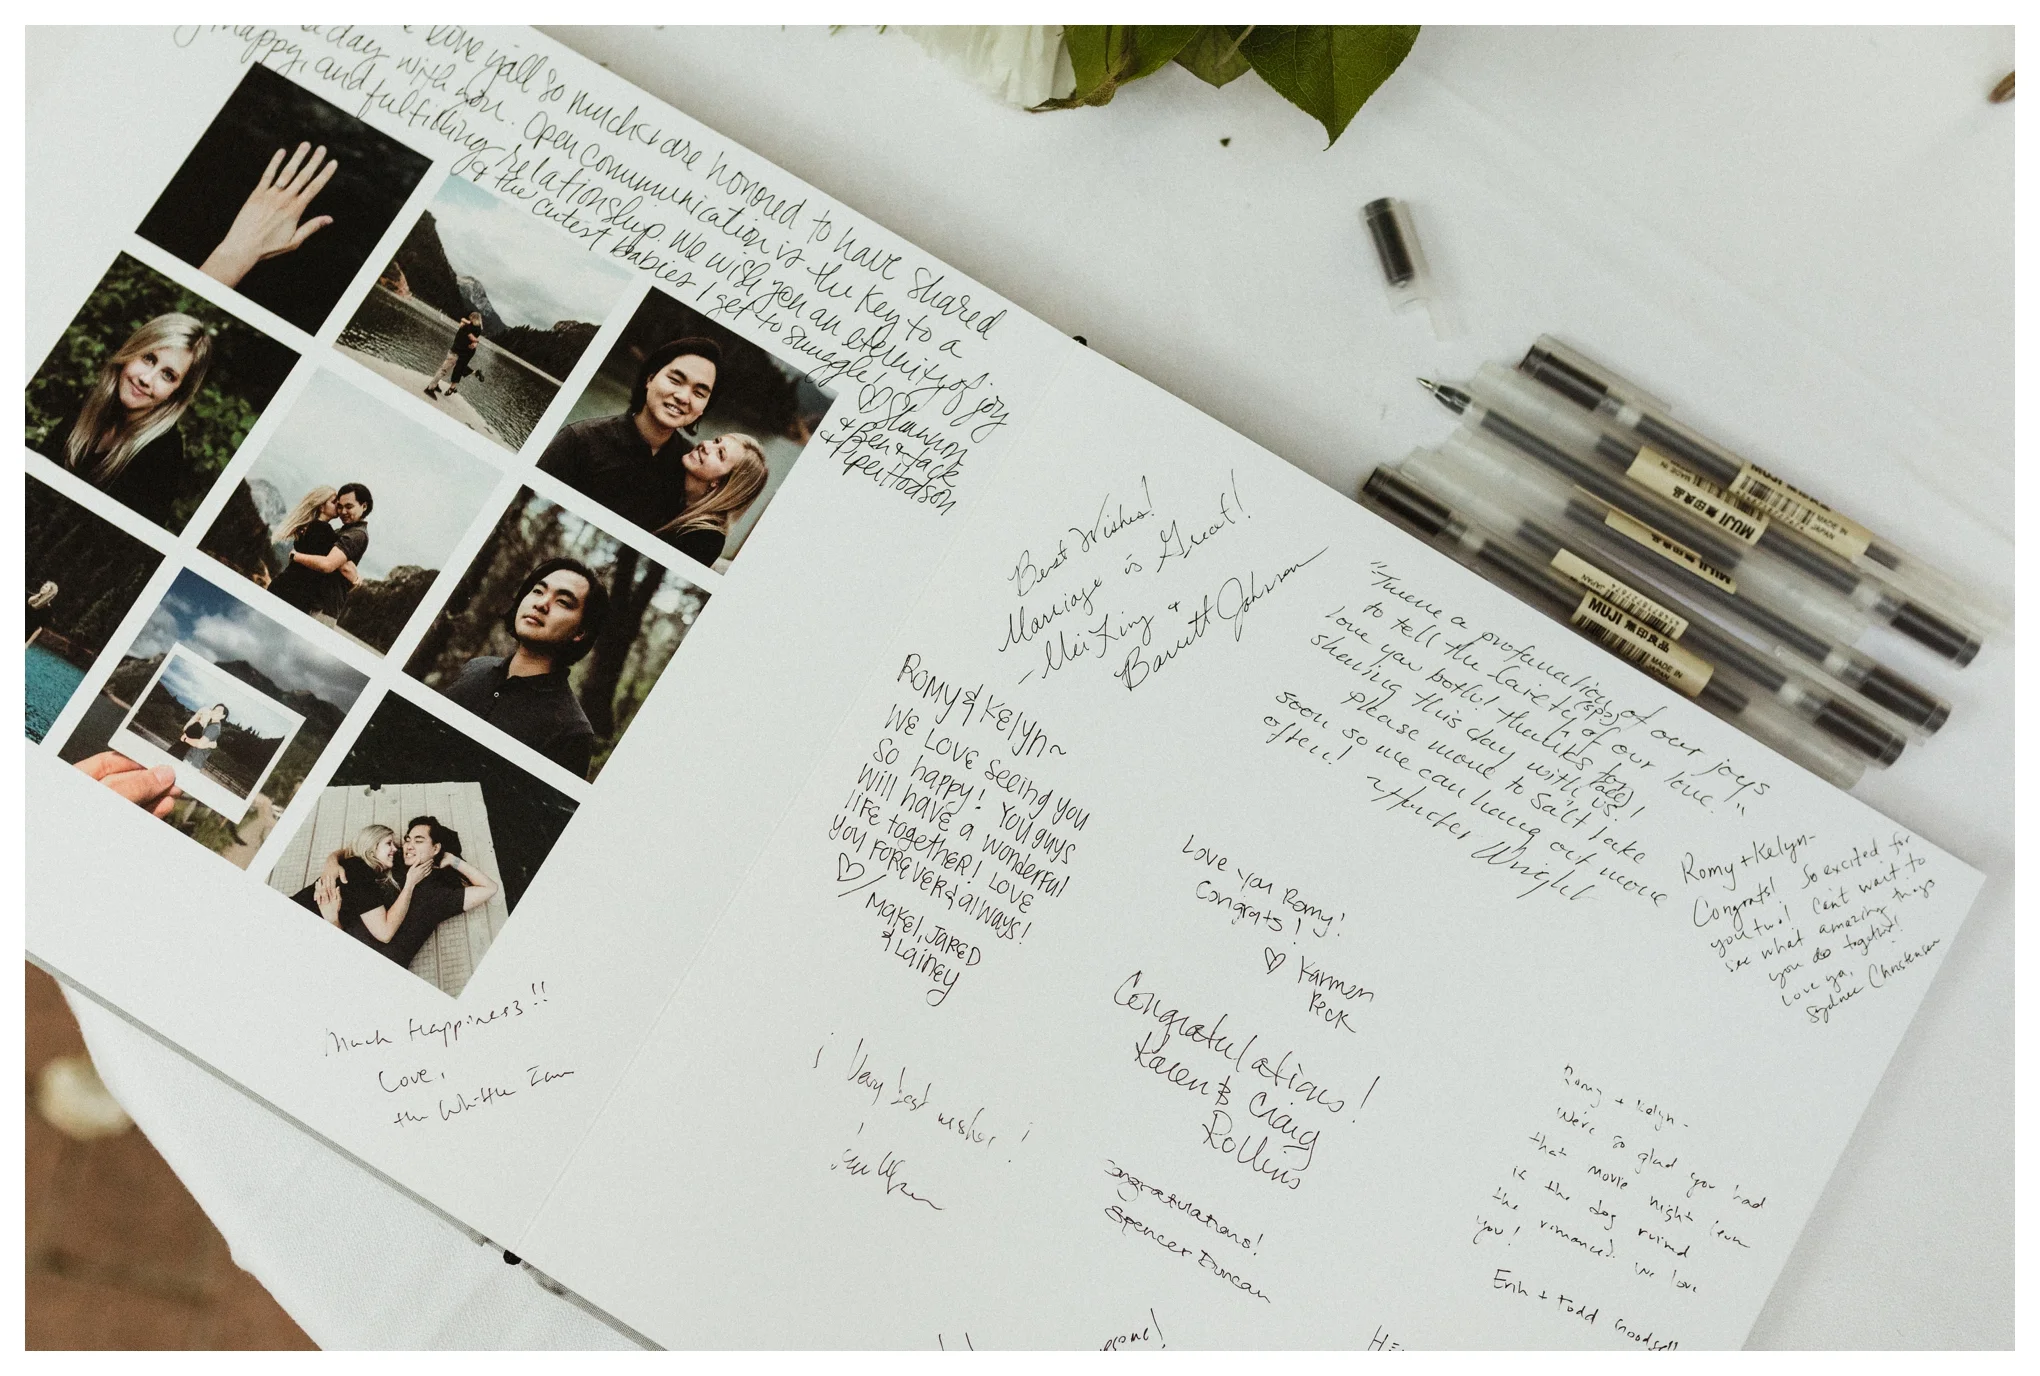 love y'all so much & are honored to have shared
day with you. Open communication is the key to a
happy, and fulfilling relationship. We wish you an eternity of joy
& the cutest babies I get to snuggle!
♡ Shannon
+ Ben + Jack
+ Piper Hodson
Best Wishes!
Marriage is Great!
- Mei Ling &
Barrett Johnson
Romy & Kelyn~
We love seeing you
so happy! You guys
will have a wonderful
life together! Love
you forever & always!
♡/ Makel, Jared
& Lainey
"Twere a profanation of our joys
to tell the laireteh(sp?) of our love."
Love you both! thanks for
sharing this day with us!
Please move to Salt Lake
soon so we can hang out more
often! ~Hunter Wright
Love you Romy!
Congrats!
♡ Karmen
Peck
Romy + Kelyn-
Congrats! So excited for
you two! Can't wait to
see what amazing things
you do together!
Love ya,
Sydnee Christensen
Congratulations!
Karen & Craig
Rollins
Much Happiness!!
Love,
the Whittle
Very best wishes!
Congratulations!
Spencer Duncan
Romy + Kelyn-
We're so glad you had
that movie night (even
if the dog ruined
the romance). We love
you!
Erin + Todd Goodsell
MUJI 無印良品
MADE IN
JAPAN
MUJI 無印良品
MUJI
MUJI 無印良品
MADE IN
JAPAN